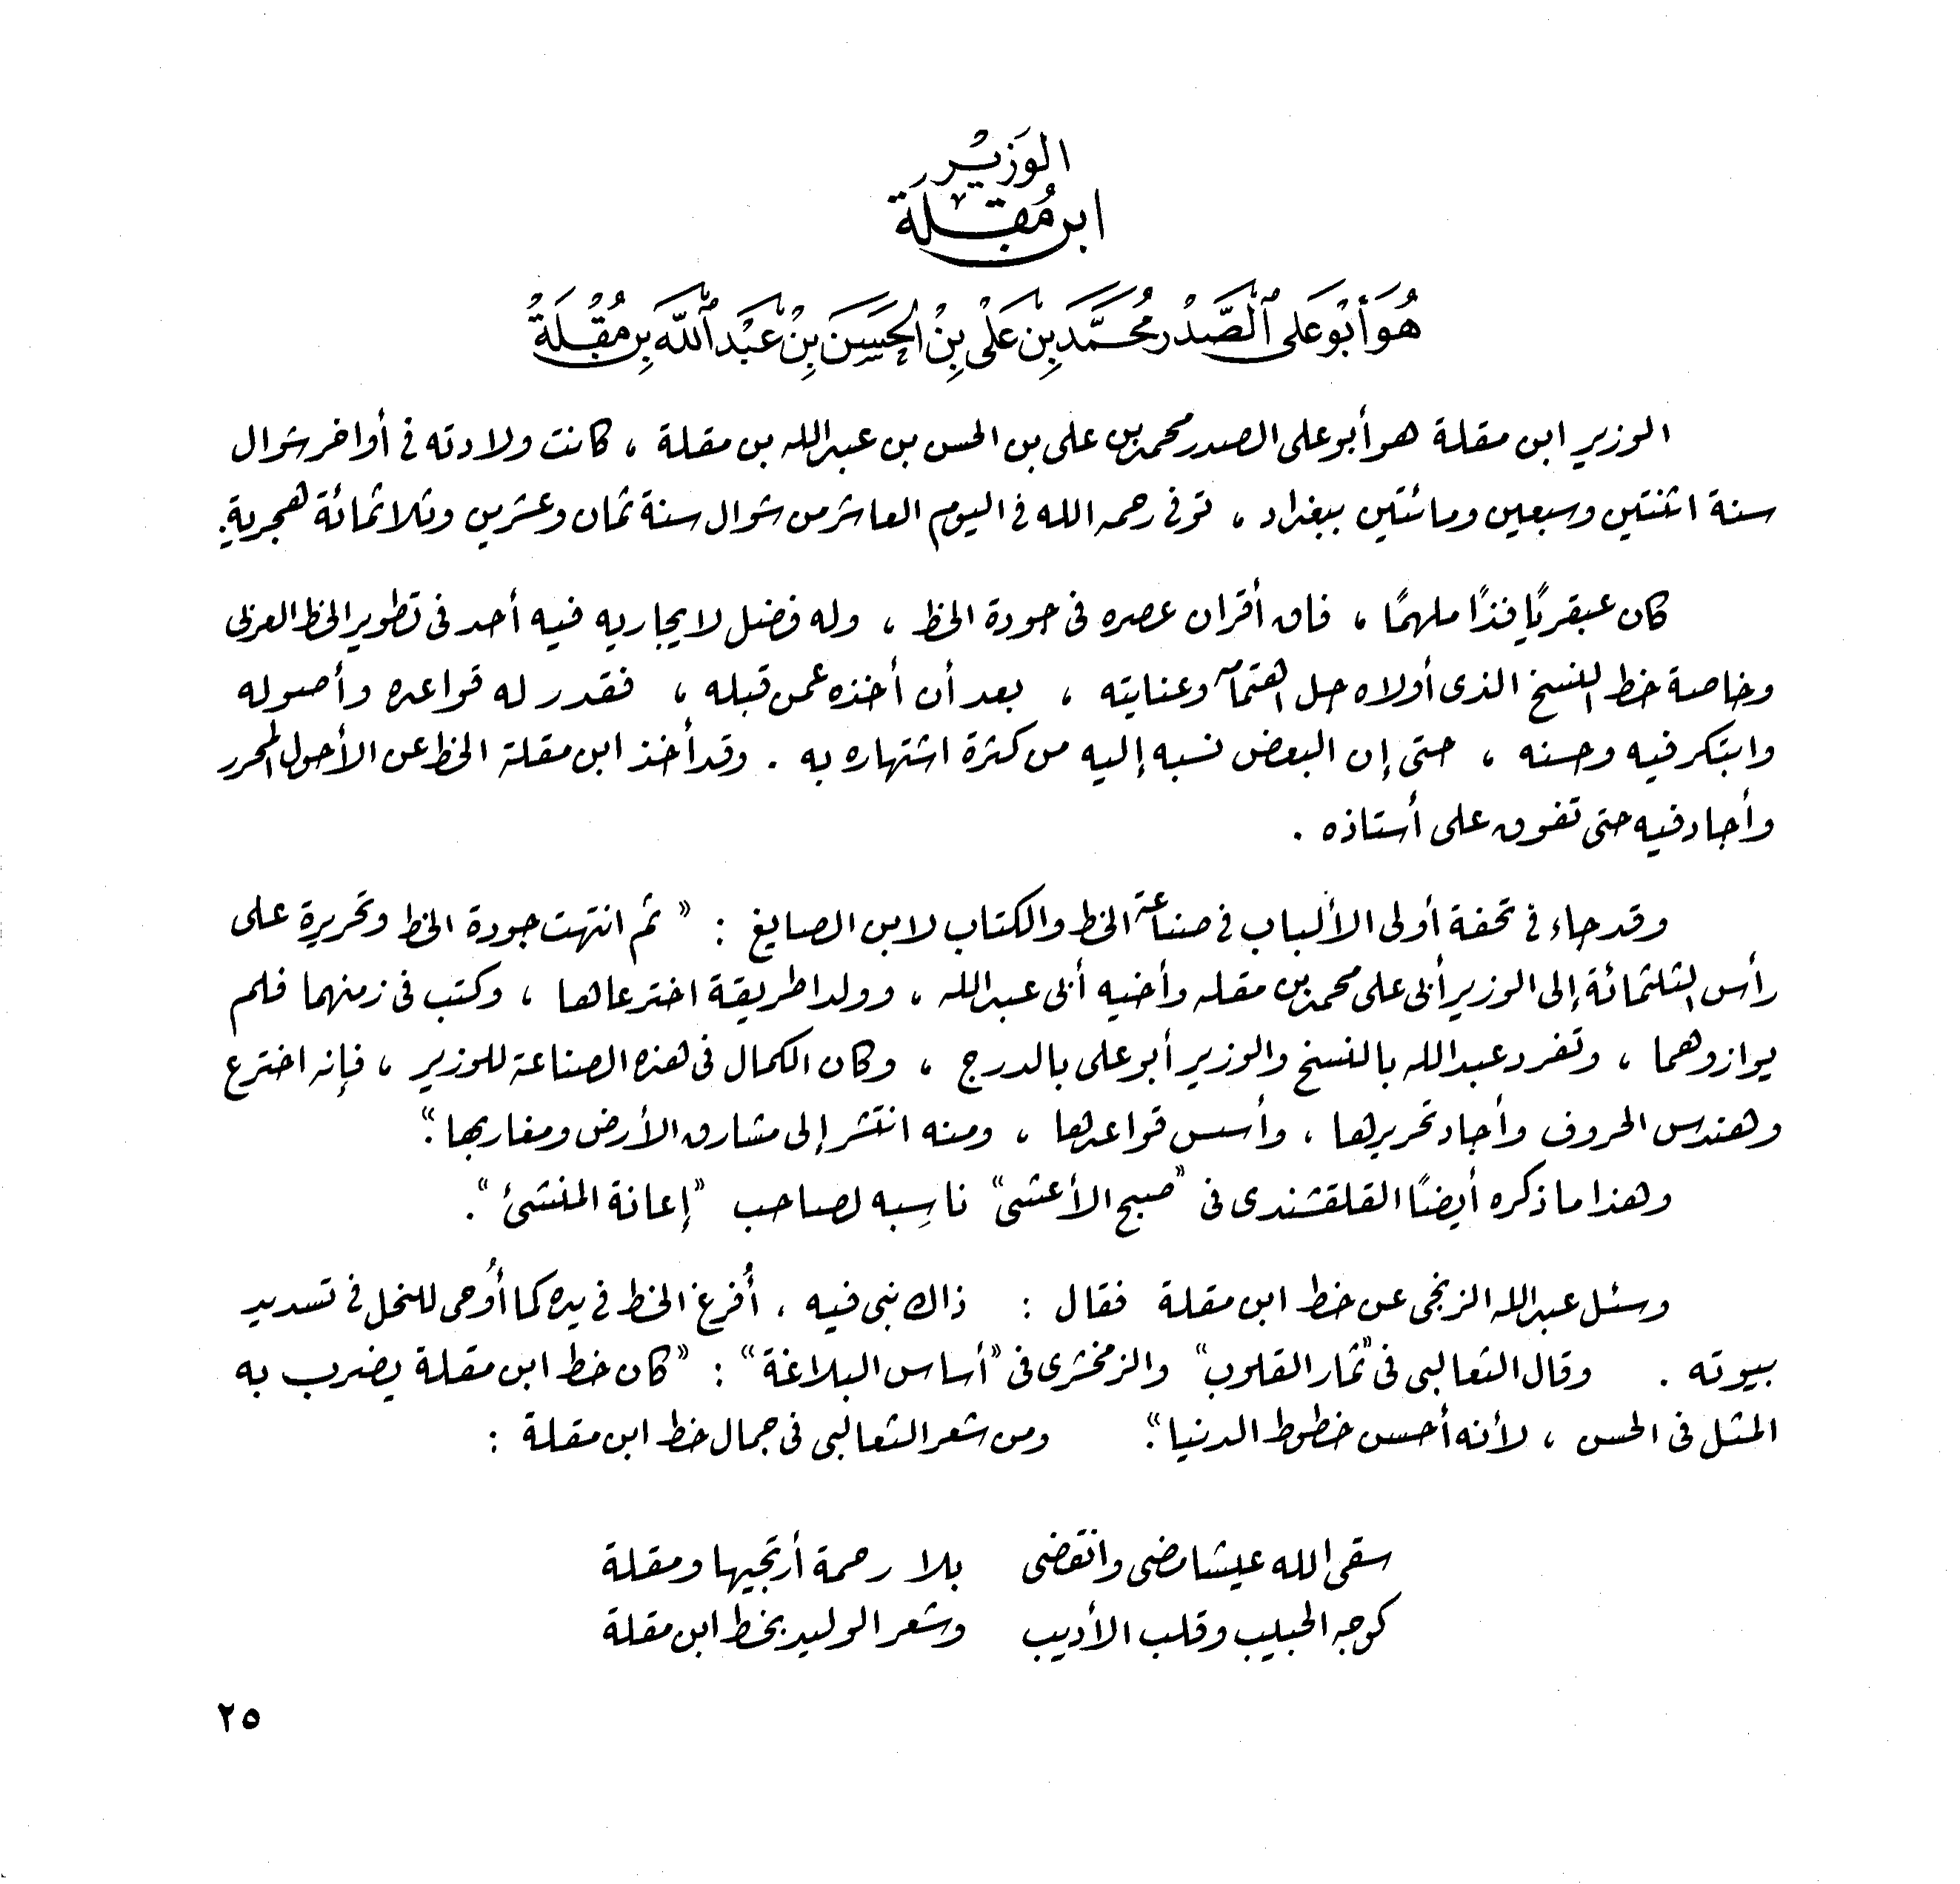 الوَزيْر
ابن مُقلَة
هُوَ أَبُو عَلى الصَّدْر مُحَمَّد بِن عَلى بِنْ الحَسَن بِنْ عَبْد اللّه بِن مُقْلَةْ
الوزير ابن مقلة هو أبو على الصدر محمد بن على بن الحسن بن عبد الله بن مقلة ، كانت ولادته فى أواخر شوال
سنة اثنتين وسبعين ومائتين ببغداد ، توفى رحمه الله فى اليوم العاشر من شوال سنة ثمان وعشرين وثلاثمائة هجرية .
كان عبقريًا فذًا ملهمًا ، فاق أقران عصره فى جودة الخط ، وله فضل لا يجاريه فيه أحد فى تطوير الخط العربى
وخاصة خط النسخ الذى أولاه جل اهتمامه وعنايته ، بعد أن أخذه عمن قبله ، فقدر له قواعده وأصوله
وابتكر فيه وحسنه ، حتى إن البعض نسبه إليه من كثرة اشتهاره به . وقد أخذ ابن مقلة الخط عن الأحول المحرر
وأجاد فيه حتى تفوق على أستاذه .
وقد جاء فى تحفة أولى الألباب فى صناعة الخط والكتاب لابن الصايغ : " ثم انتهت جودة الخط وتحريره على
رأس الثلثمائة إلى الوزير أبى على محمد بن مقله وأخيه أبى عبد الله ، وولدا طريقة اخترعاها ، وكتب فى زمنهما فلم
يوازوهما ، وتفرد عبد الله بالنسخ والوزير أبو على بالدرج ، وكان الكمال فى هذه الصناعة للوزير ، فإنه اخترع
وهندس الحروف وأجاد تحريرها ، وأسس قواعدها ، ومنه انتشر إلى مشارق الأرض ومغاربها " .
وهذا ما ذكره أيضًا القلقشندى فى " صبح الأعشى " ناسِبه لصاحب " إعانة المنشئ " .
وسئل عبد الله الزنجى عن خط ابن مقلة فقال : ذاك نبى فيه ، أُفرغ الخط فى يده كما أُوحى للنحل فى تسديد
بيوته . وقال الثعالبى فى " ثمار القلوب " والزمخشرى فى " أساس البلاغة " : " كان خط ابن مقلة يضرب به
المثل فى الحسن ، لأنه أحسن خطوط الدنيا " . ومن شعر الثعالبى فى جمال خط ابن مقلة :
سقى الله عيشا مضى وانقضى بلا رحمة أرتجيها ومقلة
كوجه الحبيب وقلب الأديب وشعر الوليد بخط ابن مقلة
٢٥